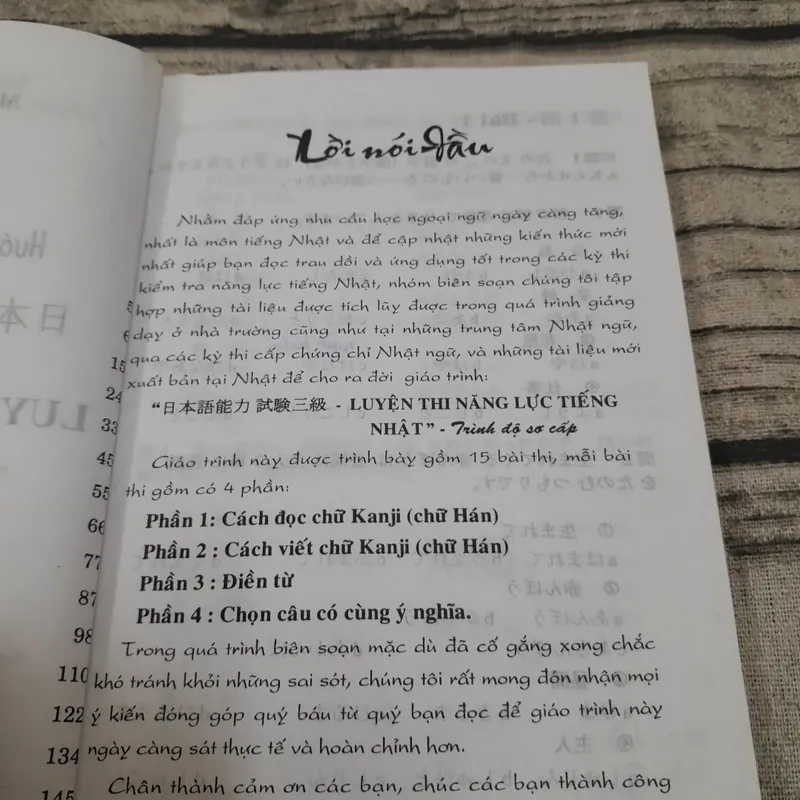 Lời nói đầu
Nhằm đáp ứng nhu cầu học ngoại ngữ ngày càng tăng,
nhất là môn tiếng Nhật và để cập nhật những kiến thức mới
nhất giúp bạn đọc trau dồi và ứng dụng tốt trong các kỳ thi
kiểm tra năng lực tiếng Nhật, nhóm biên soạn chúng tôi tập
hợp những tài liệu được tích lũy được trong quá trình giảng
dạy ở nhà trường cũng như tại những trung tâm Nhật ngữ,
qua các kỳ thi cấp chứng chỉ Nhật ngữ, và những tài liệu mới
xuất bản tại Nhật để cho ra đời giáo trình:
"日本語能力 試験三級 - LUYỆN THI NĂNG LỰC TIẾNG
NHẬT" - Trình độ sơ cấp
Giáo trình này được trình bày gồm 15 bài thi, mỗi bài
thi gồm có 4 phần:
Phần 1: Cách đọc chữ Kanji (chữ Hán)
Phần 2 : Cách viết chữ Kanji (chữ Hán)
Phần 3 : Điền từ
Phần 4 : Chọn câu có cùng ý nghĩa.
Trong quá trình biên soạn mặc dù đã cố gắng xong chắc
khó tránh khỏi những sai sót, chúng tôi rất mong đón nhận mọi
ý kiến đóng góp quý báu từ quý bạn đọc để giáo trình này
ngày càng sát thực tế và hoàn chỉnh hơn.
Chân thành cảm ơn các bạn, chúc các bạn thành công
5
6
15
24
33
45
55
66
77
87
98
110
122
134
145